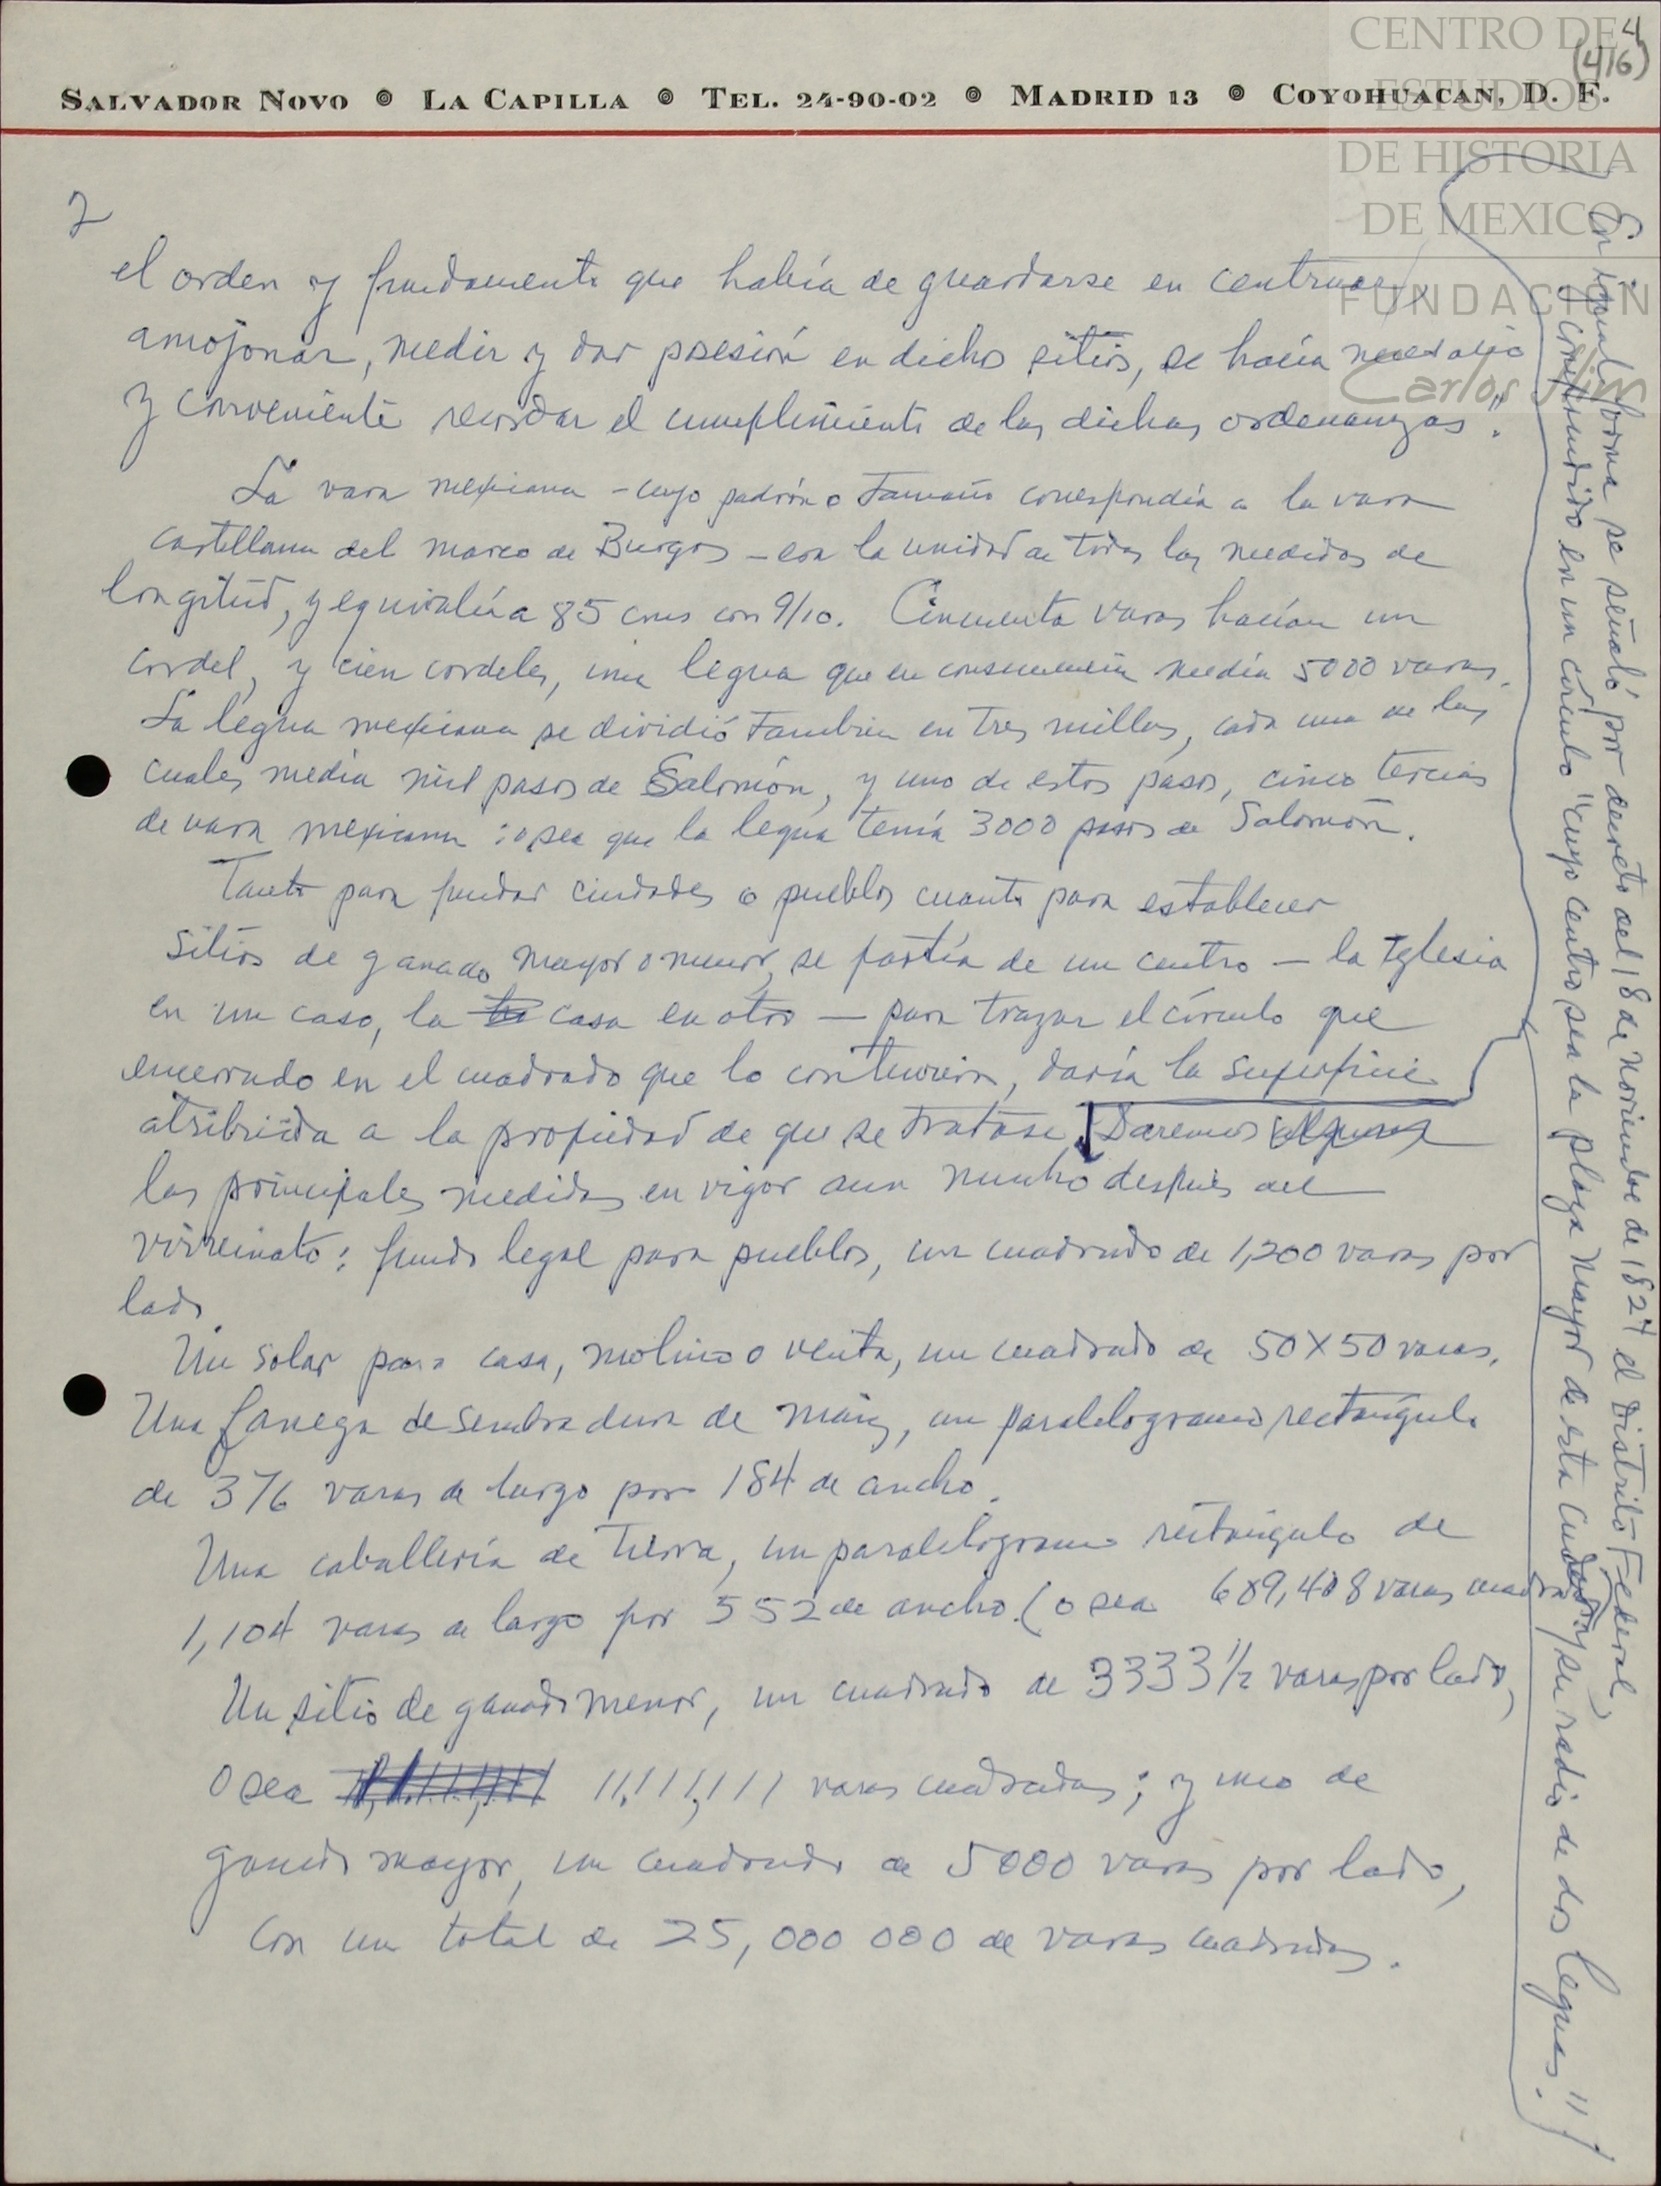 CENTRO DE
ESTUDIOS
DE HISTORIA
DE MEXICO
FUNDACIÓN
Carlos Slim
4
(416)
SALVADOR NOVO LA CAPILLA TEL. 24-90-02 MADRID 13 COYOHUACAN, D. F.
2
el orden y fundamento que había de guardarse en centruar,
amojonar, medir y dar posesión en dichos sitios, se hacía necesario
y conveniente recordar el cumplimiento de las dichas ordenanzas".
La vara mexicana - cuyo padrón o tamaño correspondía a la vara
castellana del marco de Burgos - era la unidad de todas las medidas de
longitud, y equivalía a 85 cms con 9/10. Cincuenta varas hacían un
cordel, y cien cordeles, una legua que en consecuencia medía 5000 varas.
La legua mexicana se dividió también en tres millas, cada una de las
cuales medía mil pasos de Salomón, y uno de estos pasos, cinco tercias
de vara mexicana: o sea que la legua tenía 3000 pasos de Salomón.
Tanto para fundar ciudades o pueblos cuanto para establecer
sitios de ganado mayor o menor, se partía de un centro — la Iglesia
en un caso, la casa en otro — para trazar el círculo que
encerrado en el cuadrado que lo contuviera, daría la superficie
atribuida a la propiedad de que se tratase. Daremos algunas
las principales medidas en vigor aun mucho después del
virreinato: fundo legal para pueblos, un cuadrado de 1,200 varas por
lado.
Un solar para casa, molino o venta, un cuadrado de 50X50 varas.
Una fanega de sembradura de maíz, un paralelogramo rectángulo
de 376 varas de largo por 184 de ancho.
Una caballería de tierra, un paralelogramo rectángulo de
1,104 varas de largo por 552 de ancho. (o sea 609,408 varas cuadradas)
Un sitio de ganado menor, un cuadrado de 3333 1/2 varas por lado,
o sea 11,111,111 varas cuadradas; y uno de
ganado mayor, un cuadrado de 5000 varas por lado,
con un total de 25,000 000 de varas cuadradas.
En igual forma se señaló por decreto del 18 de noviembre de 1824 el Distrito Federal,
comprendido en un círculo "cuyo centro sea la plaza mayor de esta ciudad y su radio de dos leguas."